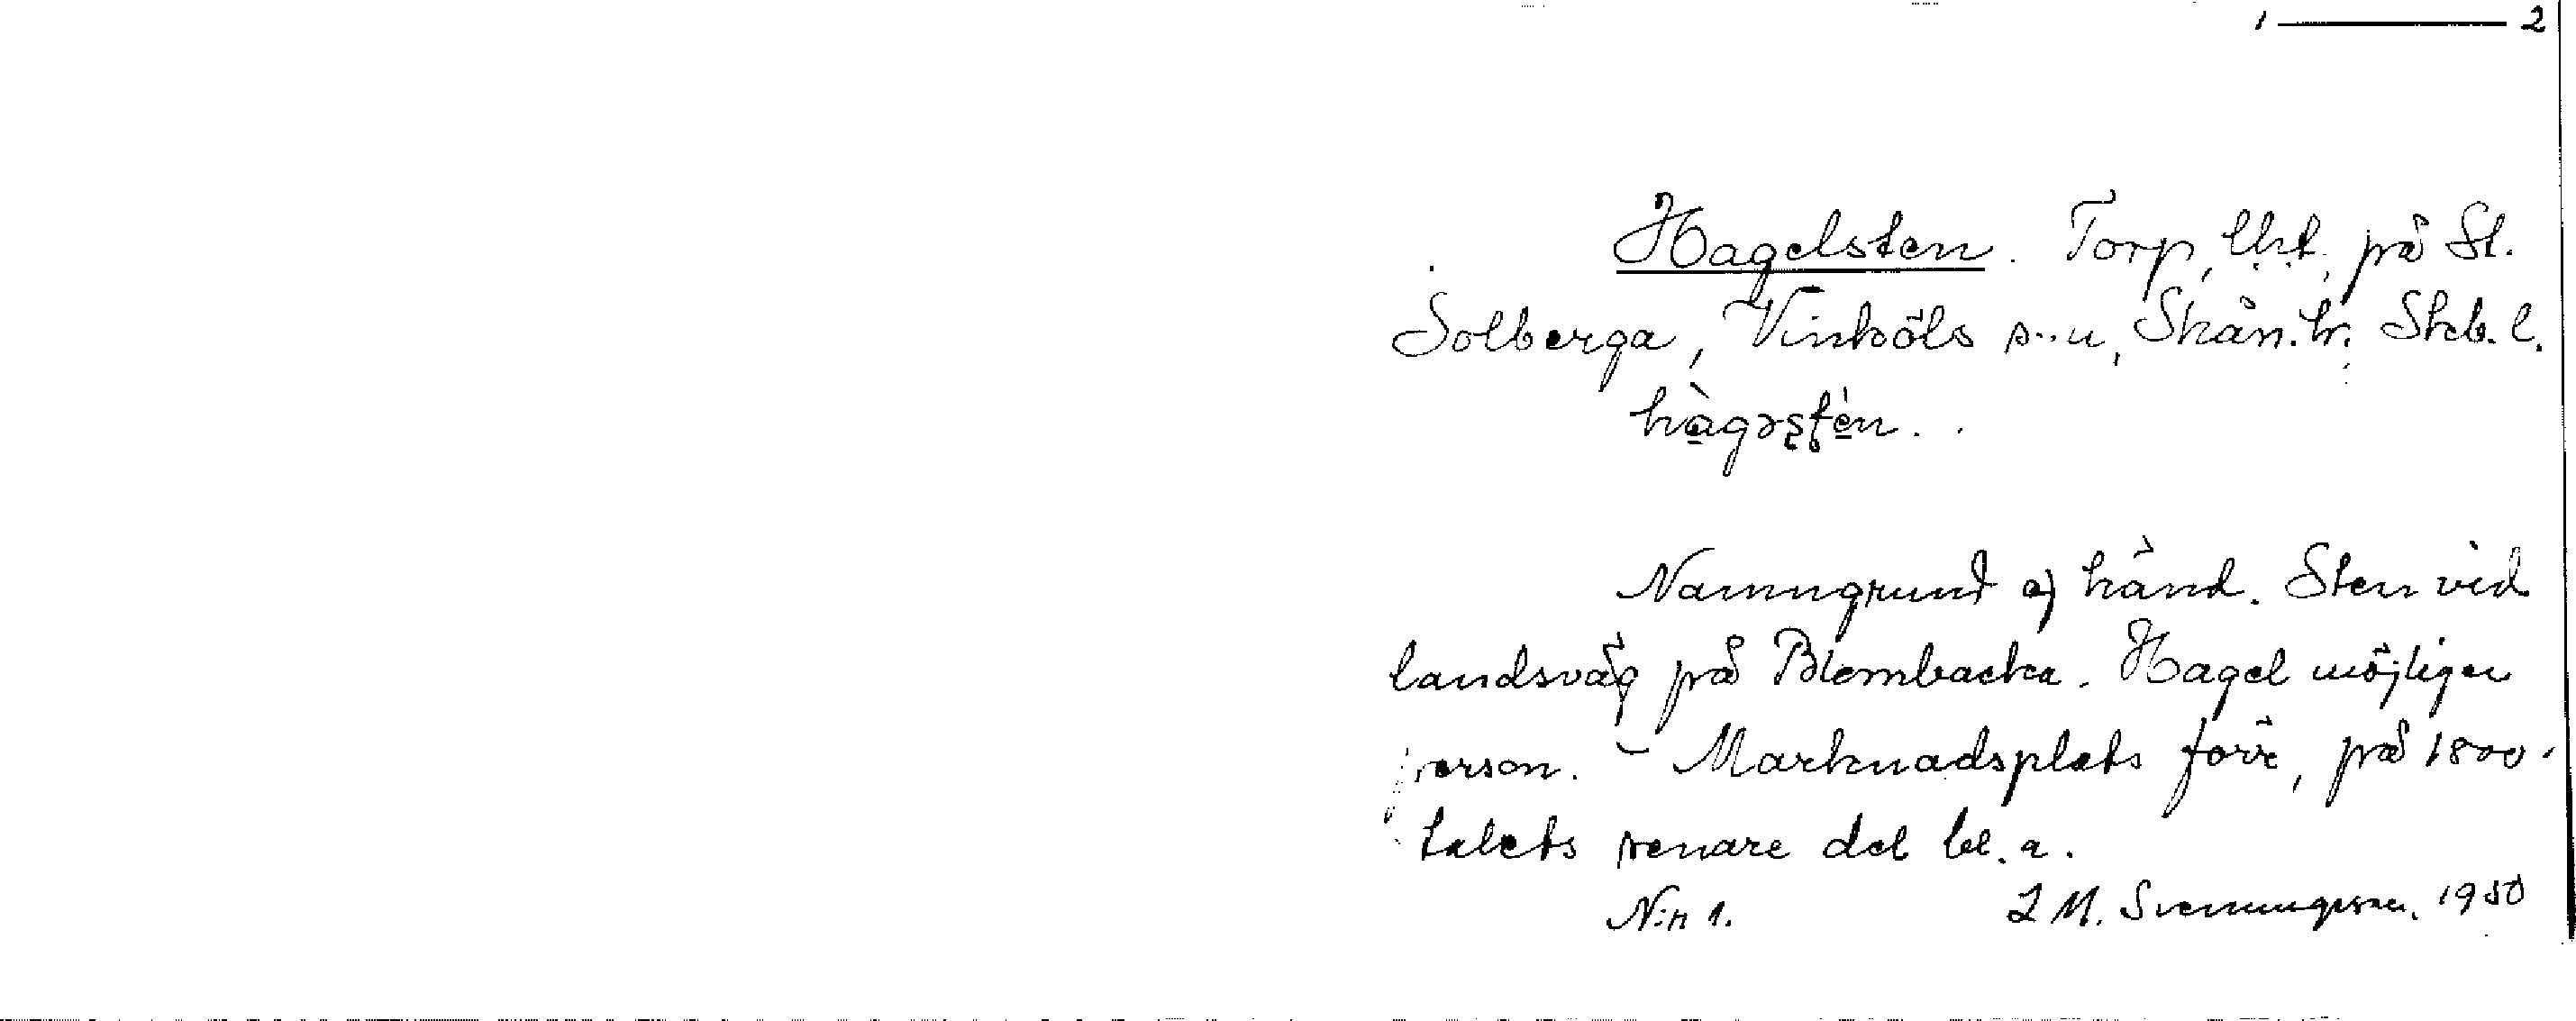 1 — 2
Hagelsten. Torp, lht, på St.
Solberga, Vinköls s:n, Skån. hr. Skb. l.
hàgəstèn.
Namngrund ej känd. Sten vid
landsväg på Blombacka. Hagel möjligen
person. – Marknadsplats förr, på 1800-
talets senare del bl. a.
N:r 1. L M. Svenungsson. 1950